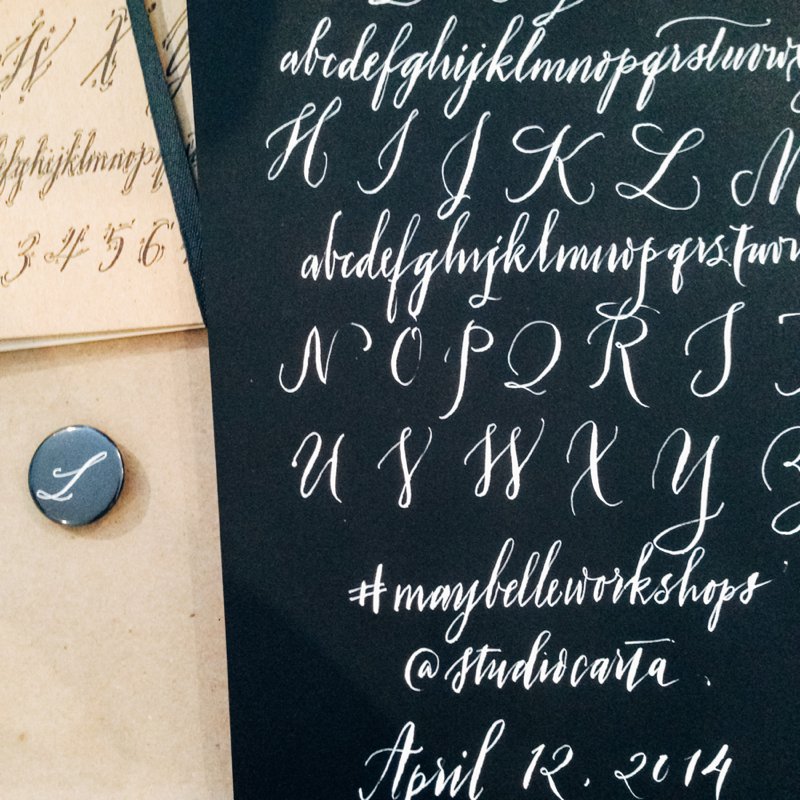 W X
fghijklmnopq
3 4 5 6
L
abcdefghijklmnopqrstuvwx
H I J K L M
abcdefghijklmnopqrstuvw
N O P Q R S T
U V W X Y Z
#maybelleworkshops
@studiocarta
April 12, 2014